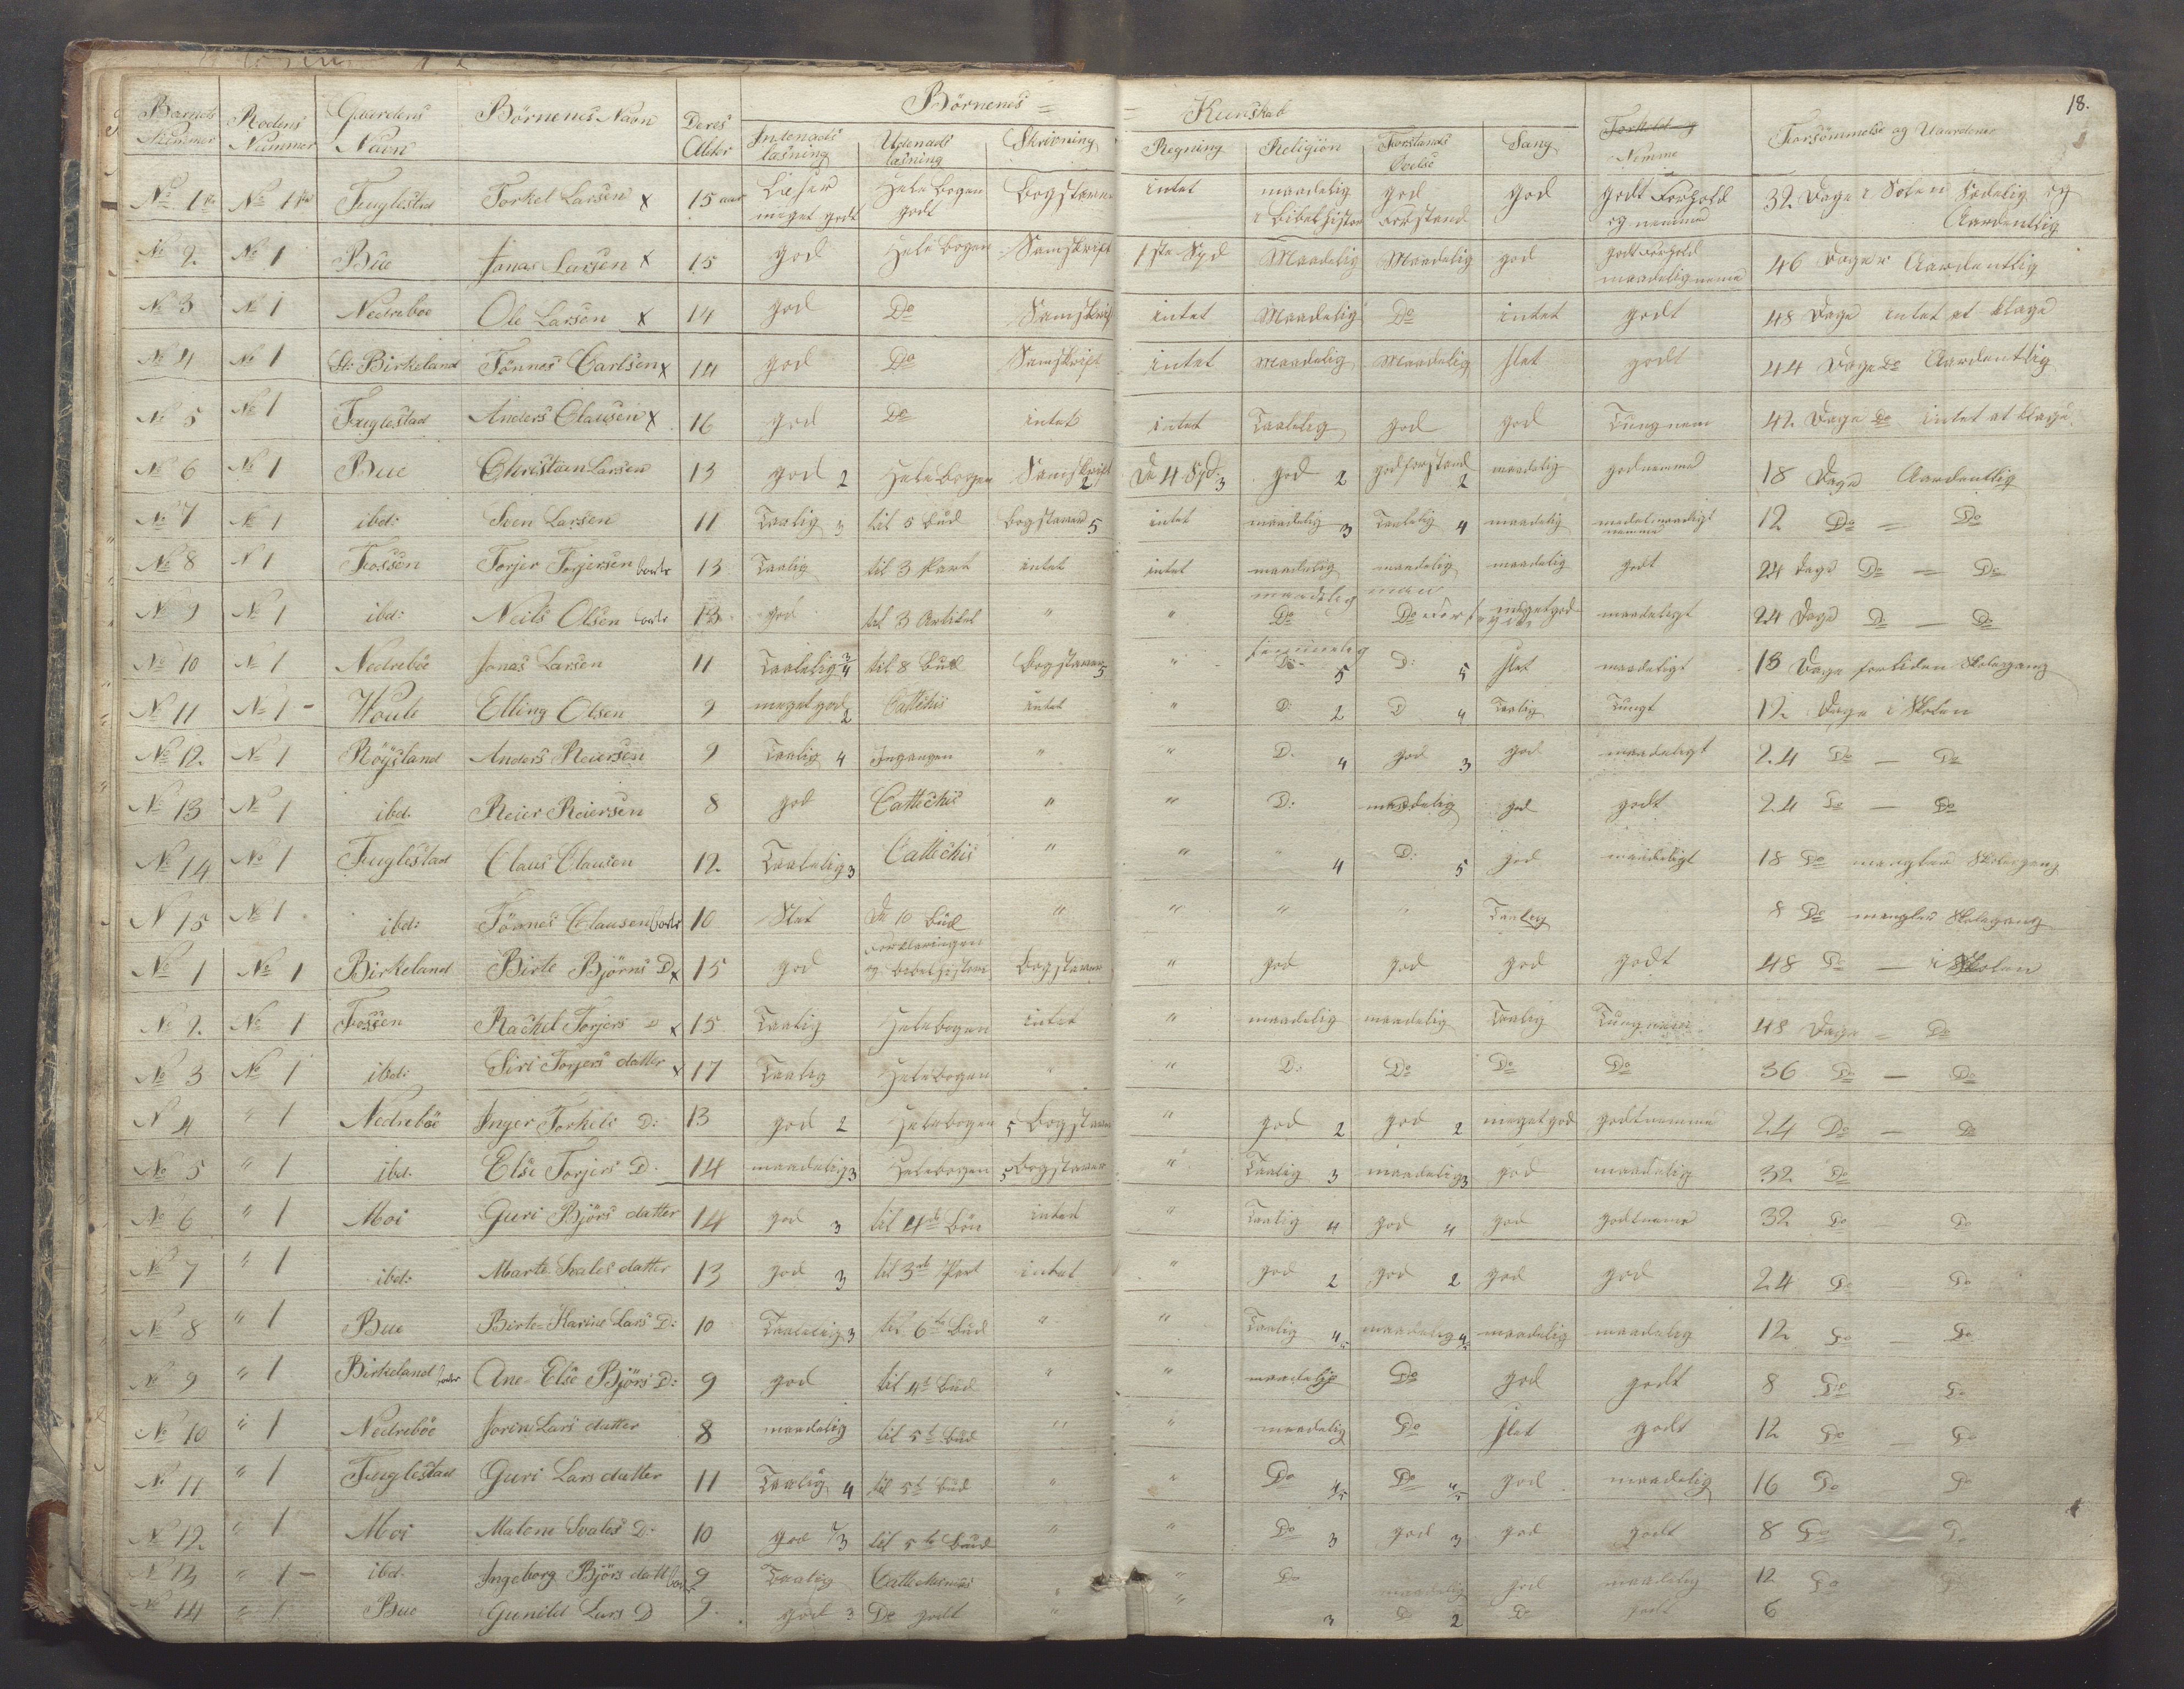 18.
Barnets Nummer | Rodens Nummer | Gaardens Navn | Börnenes Navn | Deres Alder | Börnenes = | = Kunskab | Forsömmelse og Uaardener
Indenads læsning | Udenads læsning | Skrivning | Regning | Religion | Forstands Övelse | Sang | Forhold og Nemme
No 1 | No 1 | Fuglestad | Torkel Larsen x | 15 aar | meget godt | Hele bogen godt | bogstaver | intet | maadelig i Bibelhistorie | god forstand | god | godt Forhold og nemme | 32 Dage i Skolen Sædelig og Aardentlig
No 2. | No 1 | Bue | Jonas Larsen x | 15 | god | Hele bogen | Samskrift | 1ste Spd | Maadelig | Maadelig | god | godt Forhold maadelig nemme | 46 Dager Aardentlig
No 3 | No 1 | Nedreböe | Ole Larsen x | 14 | god | Do | Samskrift | intet | Maadelig | Do | intet | godt | 48 Dage intet at klage
No 4 | No 1 | St: Birkeland | Tönnes Carlsen x | 14 | god | Do | Samskrift | intet | Maadelig | Maadelig | slet | godt | 44 Dage Do Aardentlig
No 5 | No 1 | Fuglestad | Anders Clausen x | 16 | god | Do | intet | intet | Taalelig | god | god | Tungnem | 42 Dage Do intet at klage
No 6 | No 1 | Bue | Christian Larsen | 13 | god 2 | Hele bogen | Samskrift 2 | De 4 Spd: 3 | god 2 | god forstand 2 | maadelig | god nemme | 18 Dage Aardentlig
No 7 | No 1 | ibd: | Sven Larsen | 11 | Taalig 3 | til 5 bud | bogstaver 5 | intet | maadelig 3 | Taalelig 4 | maadelig | nemme | 12 Do = Do
No 8 | N 1 | Fossen | Torjer Torjersen borte | 13 | Taalig | til 3 Part | intet | intet | maadelig | maadelig | maadelig | godt | 24 Dage Do — Do
No 9 | No 1 | ibd: | Neils Olsen borte | 13 | god | til 3 Artikel | " | " | maadelig Do | Do | meget god | maadeligt | 24 Dage D — D
No 10 | No 1 | Nedreböe | Jonas Larsen | 11 | Taalelig 3/4 | til 8 bud | bogstaver 5 | " | D: 5 | D: 5 | slet | maadeligt | 18 Dage for liden Skolegang
No 11 | No 1 - | Houle | Elling Olsen | 9 | meget god 2 | Cattechis | intet | " | D: 2 | D 4 | Taalig | Tungt | 12 Dage i Skolen
No 12. | No 1 | Röysland | Anders Reiersen | 9 | Taalig 4 | Ingangen | " | " | D. 4 | god 3 | god | maadeligt | 24 Do — Do
No 13 | No 1 | ibd. | Reier Reiersen | 8 | god | Cattechis | " | " | D: | maadelig | god | godt | 24 Do — Do
No 14 | No 1 | Fuglestad | Claus Clausen | 12. | Taalelig 3 | Cattechis | " | " | " 4 | D: 5 | god | maadeligt | 18 Do mangler Skolegang
N 15 | No 1 | ibd: | Tönnes Clausen borte | 10 | Slet | De 10 bud | " | " | " | " | Taalig | 8 Do mangler Skolegang
No 1 | No 1 | Birkeland | Birte Björns D x | 15 | god | Forklaringen og bibelhistorie | bogstaver | " | god | god | god | godt | 48 Do — i Skolen
No 2. | No 1 | Fossen | Rachel Torjers D x | 15 | Taalig | Hele bogen | intet | " | maadelig | maadelig | Taalig | Tungnem | 48 Dage = Do
No 3 | No 1 | ibd: | Siri Torjers datter x | 17 | Taalig | Hele bogen | " | " | D: | Do | Do | Do | 36 Do — Do
N 4 | " 1 | Nedreböe | Inger Torkels D: | 13 | god 2 | Hele bogen | 5 bogstaver | " | god 2 | god 2 | meget god | godt nemme | 24 Do — Do
No 5 | " 1 | ibd. | Else Torjers D. | 14 | maadelig 3 | Hele bogen | 5 bogstaver | " | Taalig 3 | maadelig 3 | god | maadelig | 32 Do
No 6 | " 1 | Moi | Guri Björs datter | 14 | god 3 | til 4de bön | intet | " | Taalig 4 | god 4 | god | godt nemme | 32 Do Do
No 7 | " 1 | ibd: | Marte Svales datter | 13 | god 3 | til 3de Part | intet | " | god 2 | god 2 | god | god | 24 Do Do
No 8 | " 1 | Bue | Birte-Karine Lars D: | 10 | Taalelig 3 | til 6te bud | " | " | Taalig 4 | maadelig 4 | maadelig | maadelig | 12 Do Do
No 9 | " 1 | Birkeland borte | Ane-Else Björs D: | 9 | god | til 4de bud | " | " | maadelig | Do | god | godt | 8 Do Do
No 10 | " 1 | Nedreböe | Jorin Lars datter | 8 | maadelig | til 5te bud | " | " | maadelig | Do | slet | godt | 12 Do — Do
No 11 | " 1 | Fuglestad | Guri Lars datter | 11 | Taalig 4 | til 5te bud | " | " | Do 4/5 | Do 4/5 | god | maadelig | 16 Do Do
No 12. | " 1 | Moi | Malene Svales D: | 10 | god 3 | til 5te bud | " | " | Do 3 | god 3 | god | godt | 8 Do Do
N 13 | " 1 - | ibd. | Ingeborg Björs datt borte | 9 | Taalig | Cathekismus | " | Do | maadelig | god | maadelig | 12 Do Do
No 14 | " 1 | Bue | Gunild Lars D | 9. | god 3 | Do godt | " | " | 3 | D 2 | Do | godt | 6